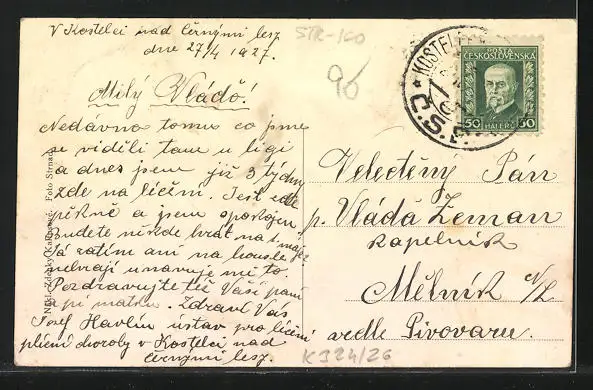 V Kostelci nad Černými lesy
dne 27/4 1927.
Milý Vládó!
Nedávno tomu co jsme
se viděli tam u ligi
a dnes jsem již 3 týdny
zde na léčení. Jest zde
pěkně a jsem spokojen
Budete někde hrát na 1. máje?
Já zatím ani na housle
nehraji unavuje mě to.
Pozdravujte též Vaší paní
a pí matku. Zdraví Vás
Josef Havlín ústav pro léčení
plicní choroby v Kostelci nad
černými lesy.
Foto Strnad
STR-160
96
POŠTA
ČESKOSLOVENSKÁ
50 HALÉŘŮ 50
KOSTELEC
Č.S.
Velectěný Pán
p. Vláďa Zeman
kapelník
Mělník n/L
vedle Pivovaru.
K324/26